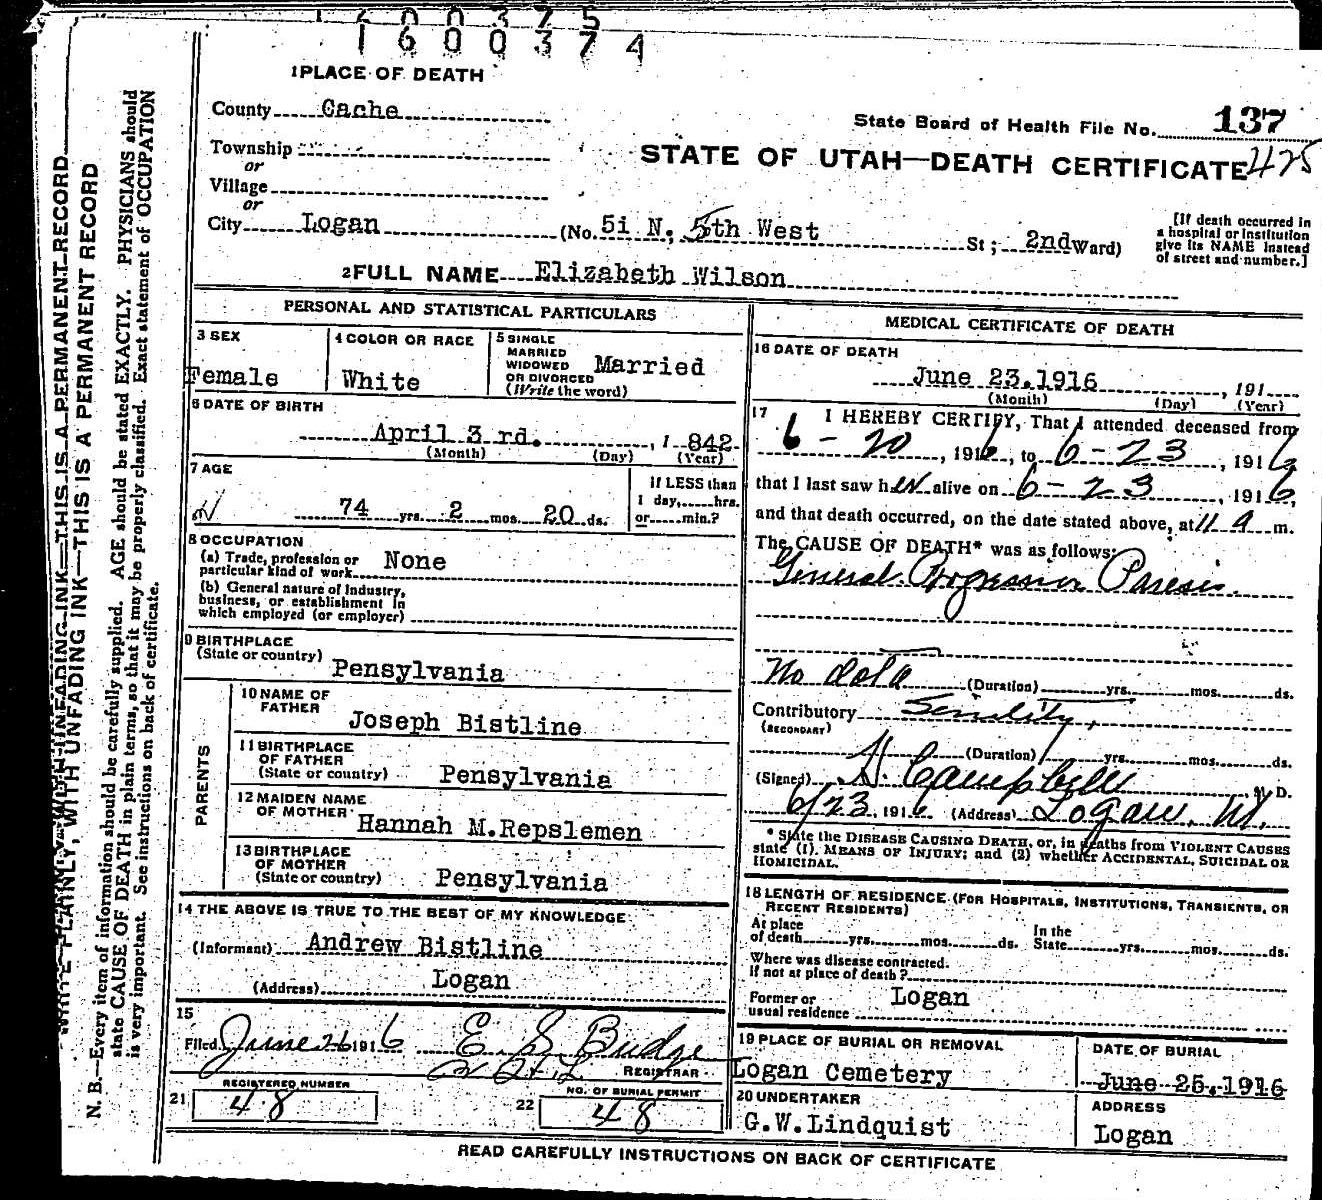 1600375
1600374
1 PLACE OF DEATH
County Cache
State Board of Health File No. 137
Township
or
Village
or
STATE OF UTAH—DEATH CERTIFICATE 425
City Logan (No. 5i N. 5th West St; 2nd Ward)
[If death occurred in
a hospital or institution
give its NAME instead
of street and number.]
2 FULL NAME Elizabeth Wilson
PERSONAL AND STATISTICAL PARTICULARS
3 SEX
Female
4 COLOR OR RACE
White
5 SINGLE
MARRIED
WIDOWED
OR DIVORCED
(Write the word)
Married
6 DATE OF BIRTH
April 3 rd. , 1 842
(Month) (Day) (Year)
7 AGE
74 yrs. 2 mos. 20 ds.
If LESS than
1 day, hrs.
or min.?
8 OCCUPATION
(a) Trade, profession or
particular kind of work None
(b) General nature of industry,
business, or establishment in
which employed (or employer)
9 BIRTHPLACE
(State or country) Pensylvania
PARENTS
10 NAME OF
FATHER
Joseph Bistline
11 BIRTHPLACE
OF FATHER
(State or country) Pensylvania
12 MAIDEN NAME
OF MOTHER
Hannah M.Repslemen
13 BIRTHPLACE
OF MOTHER
(State or country) Pensylvania
14 THE ABOVE IS TRUE TO THE BEST OF MY KNOWLEDGE
(Informant) Andrew Bistline
(Address) Logan
15
Filed June 26 1916 E. S. Budge
REGISTRAR
21 REGISTERED NUMBER
48
22 NO. OF BURIAL PERMIT
48
MEDICAL CERTIFICATE OF DEATH
16 DATE OF DEATH
June 23.1916 , 191
(Month) (Day) (Year)
17 I HEREBY CERTIFY, That I attended deceased from
6-20, 1916, to 6-23, 1916
that I last saw her alive on 6-23, 1916,
and that death occurred, on the date stated above, at 11 a m.
The CAUSE OF DEATH* was as follows:
General Progressive Paresis.
No data (Duration) yrs. mos. ds.
Contributory Senility,
(SECONDARY)
(Duration) yrs. mos. ds.
(Signed) Campbell M. D.
6/23, 1916 (Address) Logan, Ut.
* State the DISEASE CAUSING DEATH, or, in deaths from VIOLENT CAUSES
state (1) MEANS OF INJURY; and (2) whether ACCIDENTAL, SUICIDAL OR
HOMICIDAL.
18 LENGTH OF RESIDENCE (FOR HOSPITALS, INSTITUTIONS, TRANSIENTS, OR
RECENT RESIDENTS)
At place
of death yrs. mos. ds.
In the
State yrs. mos. ds.
Where was disease contracted.
If not at place of death?
Former or
usual residence Logan
19 PLACE OF BURIAL OR REMOVAL
Logan Cemetery
DATE OF BURIAL
June 25.1916
20 UNDERTAKER
G.W.Lindquist
ADDRESS
Logan
READ CAREFULLY INSTRUCTIONS ON BACK OF CERTIFICATE
WRITE PLAINLY, WITH UNFADING INK—THIS IS A PERMANENT RECORD
N. B.—Every item of information should be carefully supplied. AGE should be stated EXACTLY. PHYSICIANS should
state CAUSE OF DEATH in plain terms, so that it may be properly classified. Exact statement of OCCUPATION
is very important. See instructions on back of certificate.